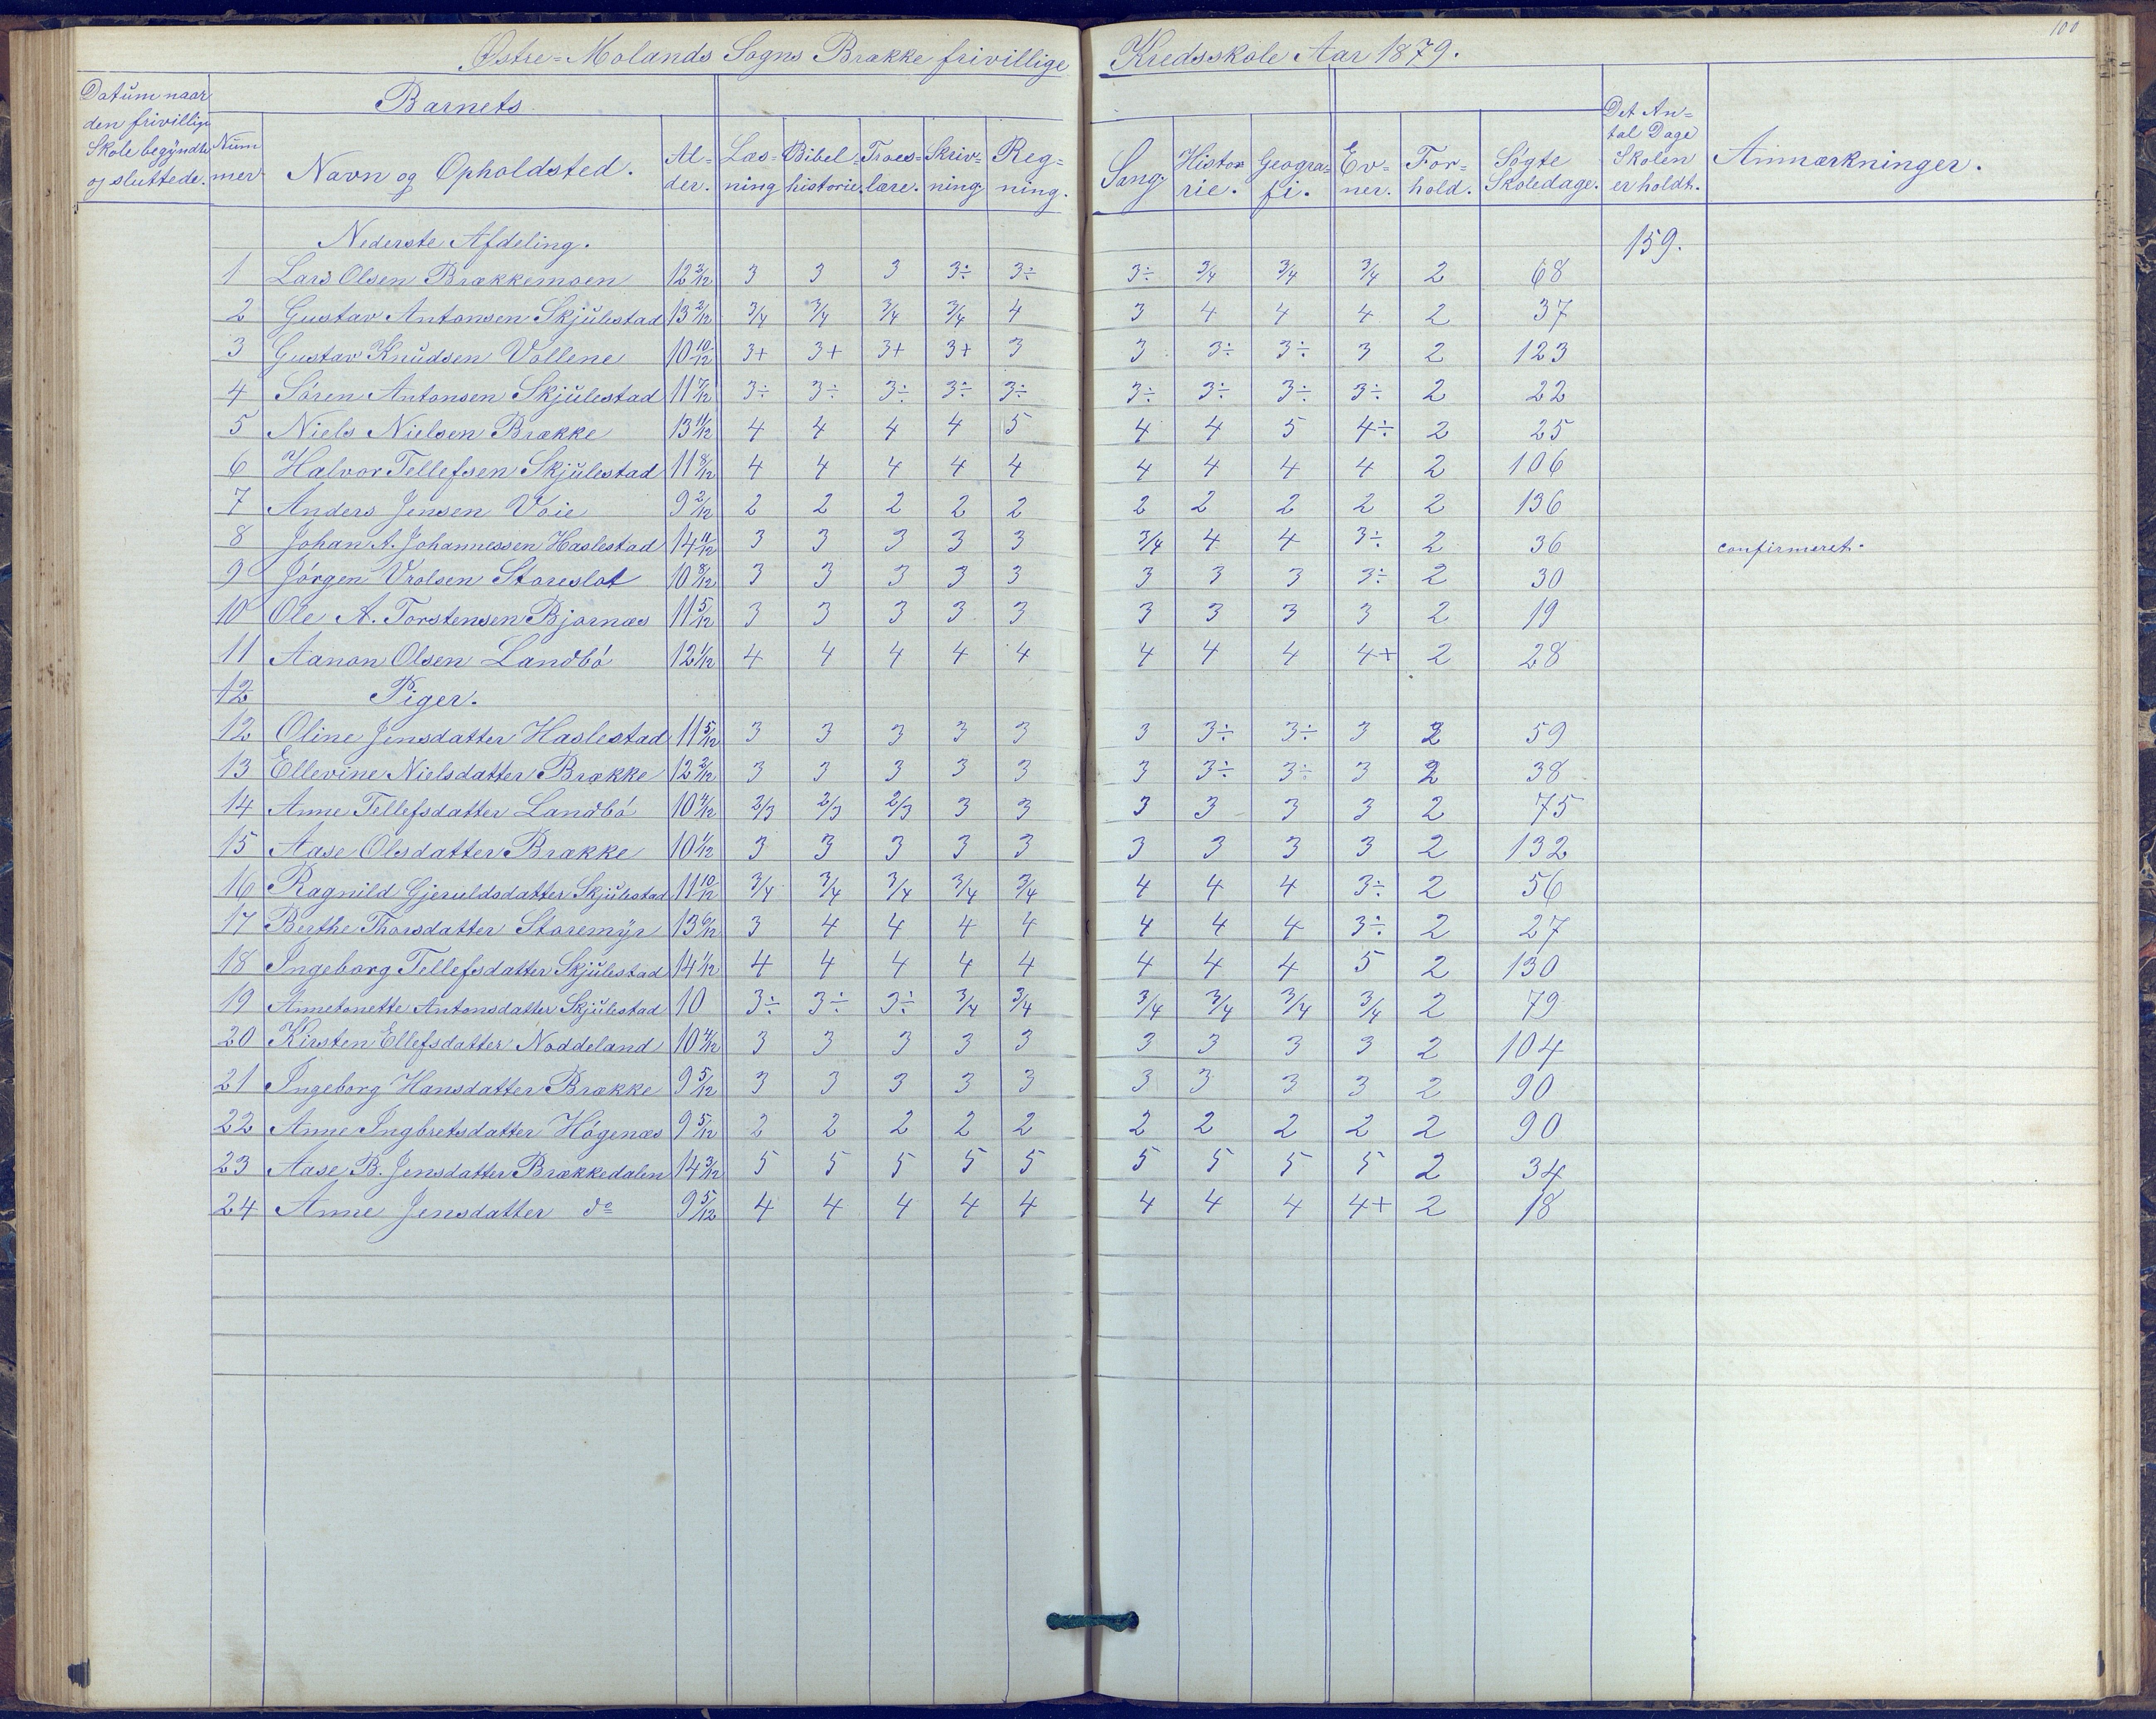 100
Østre=Molands Sogns Brække frivillige Kredsskole Aar 1879.
Datum naar den frivillige Skole begyndte og sluttede. | Nummer | Barnets Navn og Opholdsted. | Al=der. | Læs=ning | Bibel=historie. | Troes=lære. | Skriv=ning | Reg=ning. | Sang | Histo=rie. | Geogra=fi. | Ev=ner. | For=hold. | Søgte Skoledage. | Det An=tal Dage Skolen er holdt. | Anmærkninger.
Nederste Afdeling. 159.
1 Lars Olsen Brækkemoen 12 2/12 3 3 3 3÷ 3÷ 3÷ 3/4 3/4 3/4 2 68
2 Gustav Antonsen Skjulestad 13 2/12 3/4 3/4 3/4 3/4 4 3 4 4 4 2 37
3 Gustav Knudsen Vollene 10 10/12 3+ 3+ 3+ 3+ 3 3 3÷ 3÷ 3 2 123
4 Søren Antonsen Skjulestad 11 7/12 3÷ 3÷ 3÷ 3÷ 3÷ 3÷ 3÷ 3÷ 3÷ 2 22
5 Niels Nielsen Brække 13 11/12 4 4 4 4 5 4 4 5 4÷ 2 25
6 Halvor Tellefsen Skjulestad 11 8/12 4 4 4 4 4 4 4 4 4 2 106
7 Anders Jensen Voie 9 2/12 2 2 2 2 2 2 2 2 2 2 136
8 Johan A. Johannessen Haslestad 14 11/12 3 3 3 3 3 3/4 4 4 3÷ 2 36 confirmeret.
9 Jørgen Vrolsen Storeslot 10 8/12 3 3 3 3 3 3 3 3 3÷ 2 30
10 Ole A. Torstensen Bjornæs 11 5/12 3 3 3 3 3 3 3 3 3 2 19
11 Aanon Olsen Landbó 12 1/12 4 4 4 4 4 4 4 4 4+ 2 28
12 Piger.
12 Oline Jensdatter Haslestad 11 5/12 3 3 3 3 3 3 3÷ 3÷ 3 2 59
13 Ellevine Nielsdatter Brække 12 2/12 3 3 3 3 3 3 3÷ 3÷ 3 2 38
14 Anne Tellefsdatter Landbó 10 4/12 2/3 2/3 2/3 3 3 3 3 3 3 2 75
15 Aase Olsdatter Brække 10 1/12 3 3 3 3 3 3 3 3 3 2 132
16 Ragnild Gjeruldsdatter Skjulestad 11 10/12 3/4 3/4 3/4 3/4 3/4 4 4 4 3÷ 2 56
17 Berthe Thorsdatter Storemyr 13 6/12 3 4 4 4 4 4 4 4 3÷ 2 27
18 Ingeborg Tellefsdatter Skjulestad 14 1/12 4 4 4 4 4 4 4 4 5 2 130
19 Annetonette Antonsdatter Skjulestad 10 3÷ 3÷ 3÷ 3/4 3/4 3/4 3/4 3/4 3/4 2 79
20 Kirsten Ellefsdatter Noddeland 10 4/12 3 3 3 3 3 3 3 3 3 2 104
21 Ingeborg Hansdatter Brække 9 5/12 3 3 3 3 3 3 3 3 3 2 90
22 Anne Ingbretsdatter Högenæs 9 5/12 2 2 2 2 2 2 2 2 2 2 90
23 Aase B. Jensdatter Brækkedalen 14 3/12 5 5 5 5 5 5 5 5 5 2 34
24 Anne Jensdatter do 9 5/12 4 4 4 4 4 4 4 4 4+ 2 18